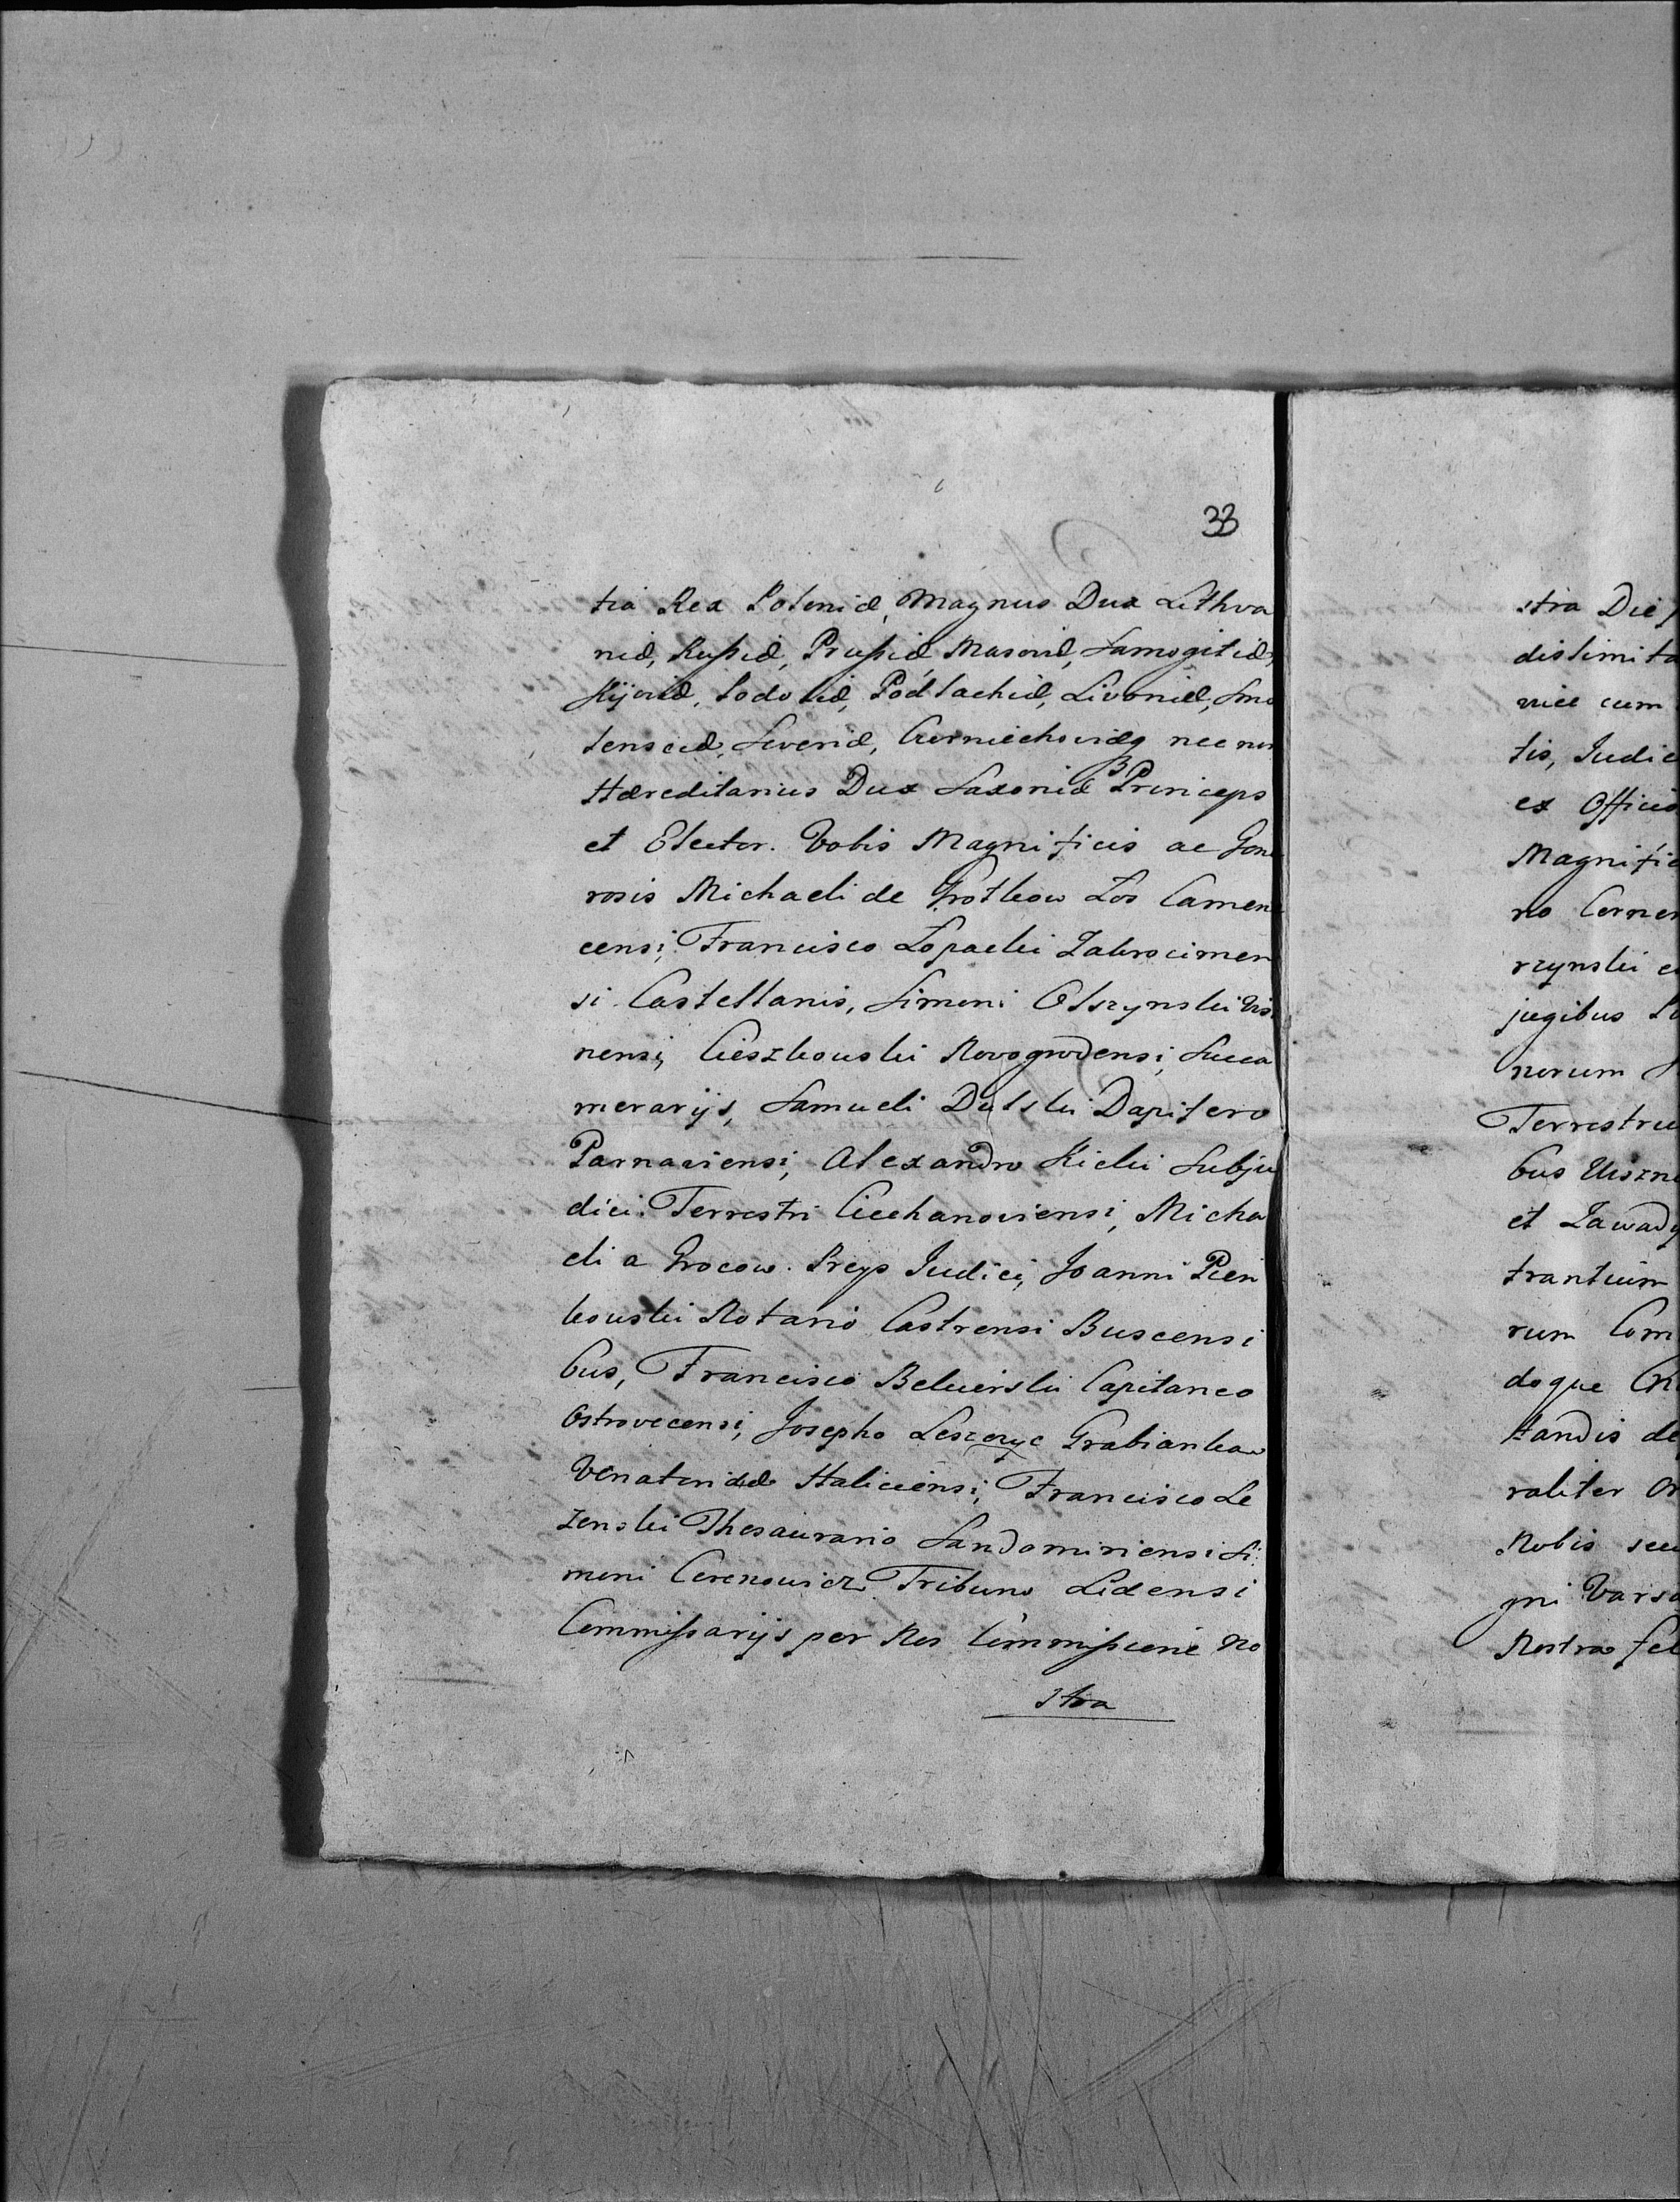 33
tia Rex Poloniæ, Magnus Dux Lithva
niæ, Rußiæ, Prußiæ, Masoviæ, Samogitiæ,
Kijoviæ, Podoliæ, Podlachiæ, Livoniæ, Smo
lensciæ, Severiæ, Czerniechoviæq nec non
Hæreditarius Dux Saxoniæ Princeps
et Elector. Vobis Magnificis ac Gene
rosis Michaeli de Grotkow Łos Camen
censi, Francisco Łopacki Zakrocimen
si Castellanis, Simoni Olszynski Vis
nensi, Cieszkowski Novogrodensi, Succa
merarijs, Samueli Dulski Dapifero
Parnaviensi, Alexandro Kicki Subju
dici Terrestri Ciechanoviensi, Micha
eli a Grocow. Preys Judici, Joanni Pien
kowski Notario Castrensi Buscensi
bus, Francisco Bekierski Capitaneo
Ostrovecensi, Josepho Leszczyc Grabianka
Venatori Haliciensi, Francisco Le
zenski Thesaurario Sandomiriensi Si
moni Cerenowicz Tribuno Lidensi
Commißarijs per Nos Commißione No
stra
stra Die
dislimita
niæ cum
tis, Judic
ex Officio
Magnific
no Cerner
rzynski e
jugibus
norum
Terrestriu
bus
et Zawady
trantium
rum Com
doque
tandis de
raliter
Nobis seu
gni Varsa
Nostra fel